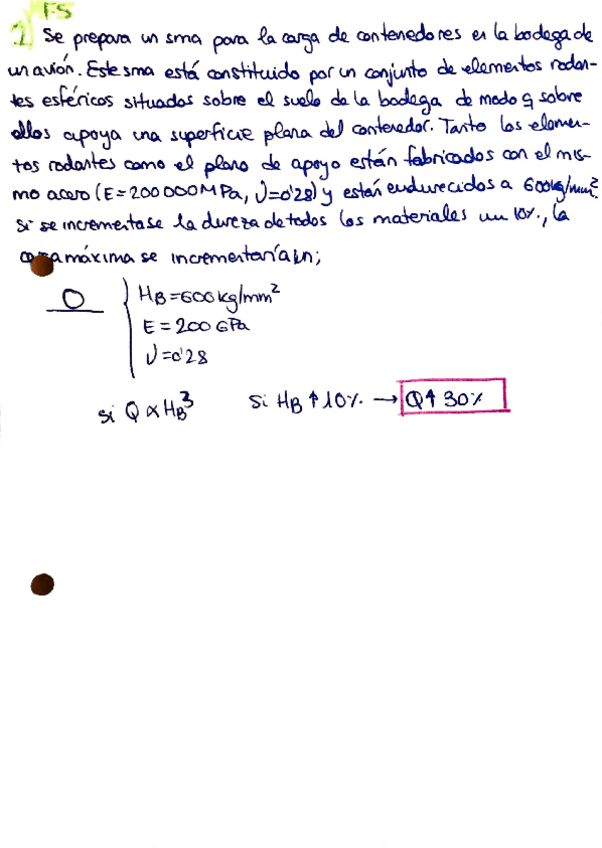 F5
1 Se prepara un sma para la carga de contenedores en la bodega de
un avión. Este sma está constituido por un conjunto de elementos rodan-
tes esféricos situados sobre el suelo de la bodega de modo q sobre
ellos apoya una superficie plana del contenedor. Tanto los elemen-
tos rodantes como el plano de apoyo están fabricados con el mis-
mo acero (E=200 000MPa, ν=0'28) y están endurecidos a 600kg/mm².
Si se incrementase la dureza de todos los materiales un 10%, la
máxima se incrementaría un;
HB=600kg/mm²
E=200GPa
ν=0'28
si Q ∝ HB³ Si HB ↑ 10% → Q↑ 30%